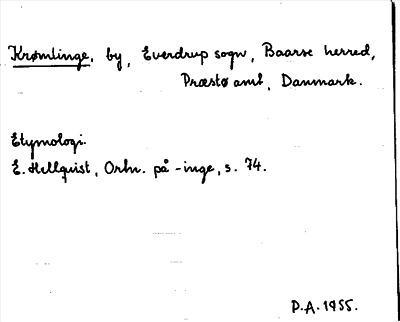 Krømlinge, by, Everdrup sogn, Baarse herred,
Præstø amt, Danmark.
Etymologi.
E. Hellquist, Ortn. på -inge, s. 74.
P.A. 1955.